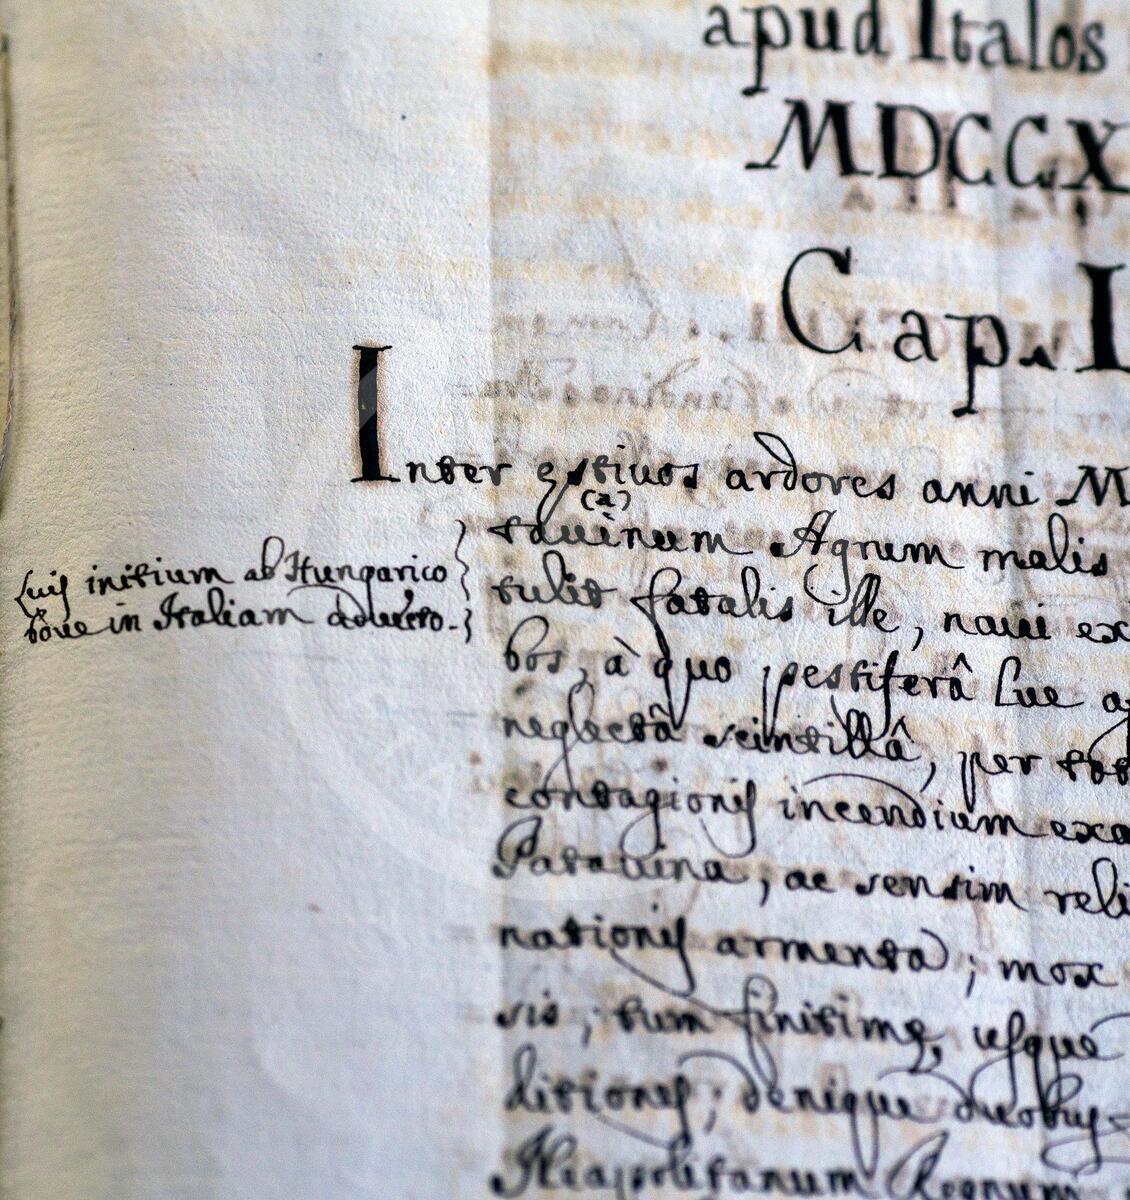 apud Italos
MDCCX
Cap. I
Inter ęstivos ardores anni M
(a)
tavinum Agrum malis
Luis initium ab Hungarico
bove in Italiam advecto.
tulit fatalis ille, navi ex
bos, à quo pestiferâ Lue
neglectâ scintillâ, per tot
contagionis incendium exa
Patavina, ac sensim reli
nationis armenta; mox
sis; tum finitimę, usque
ditiones; denique duobus
Neapolitanum Regnum